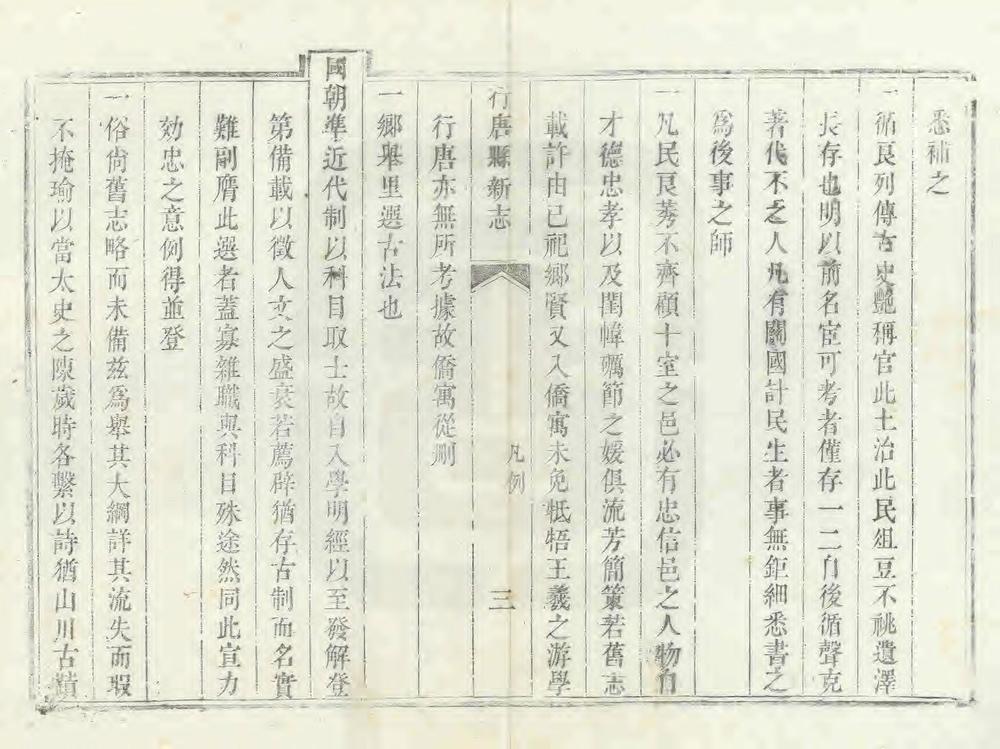 悉補之
一循良列傳古史艷稱官此土治此民俎豆不祧遺澤
長存也明以前名宦可考者僅存一二自後循聲克
著代不乏人凡有關國計民生者事無鉅細悉書之
爲後事之師
一凡民良莠不齊顧十室之邑必有忠信邑之人物自
才德忠孝以及閨幃礪節之媛俱流芳簡策若舊志
載許由已祀鄉賢又入僑寓未免牴牾王羲之游學
行唐縣新志
凡例
三
行唐亦無所考據故僑寓從刪
一鄉舉里選古法也
國朝準近代制以科目取士故自入學明經以至發解登
第備載以徵人文之盛衰若薦辟猶存古制而名實
難副膺此選者蓋寡雜職與科目殊途然同此宣力
効忠之意例得並登
一俗尚舊志略而未備茲爲舉其大綱詳其流失而瑕
不掩瑜以當太史之陳歲時各繫以詩猶山川古蹟